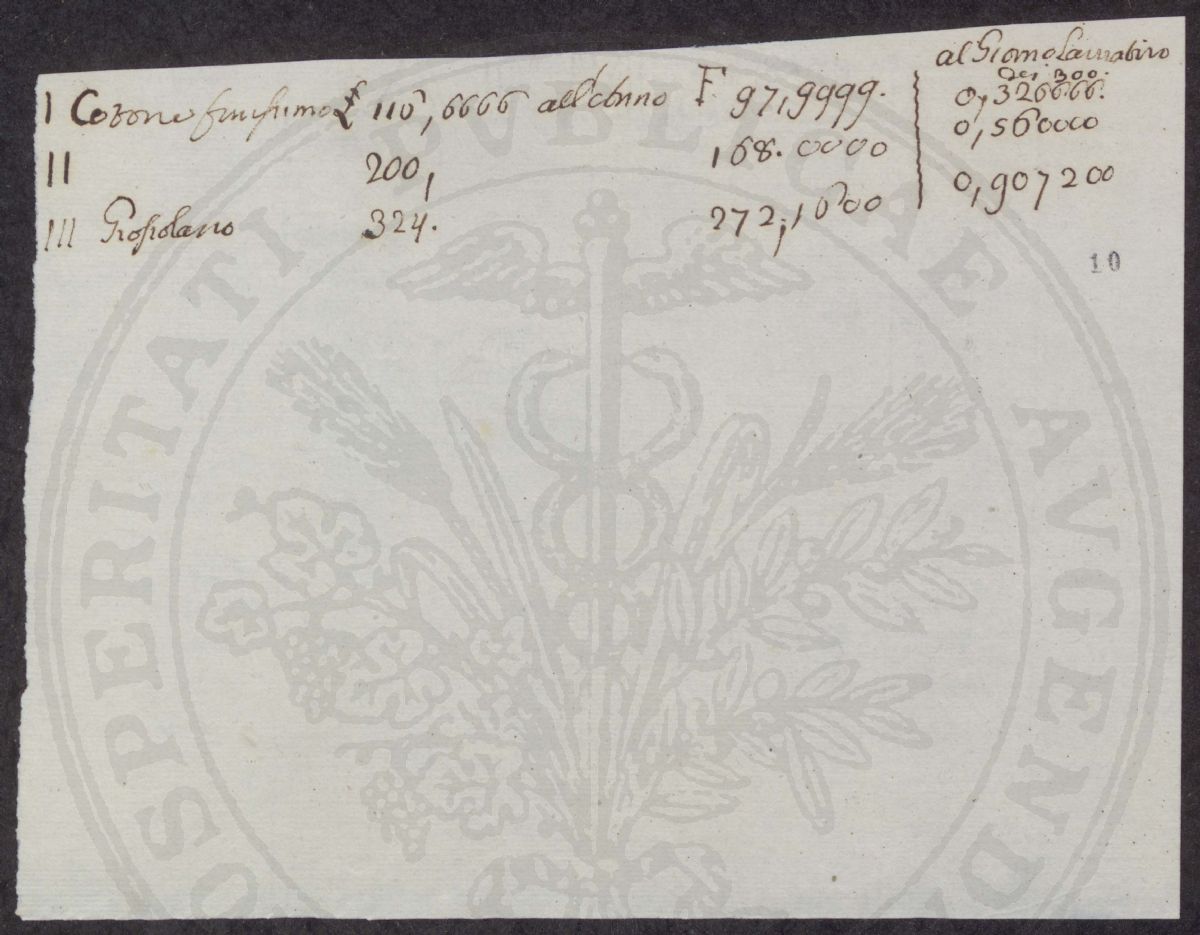 al Giorno Lavorativo
dei 300.
I Cotone finissimo £ 116,6666 all'Anno F 97,9999. 0,326666.
II 200, 168.0000 0,560000
III Grossolano 324. 272,1600 0,907200
10
OSPERITATI PVBLICAE AVGENDO